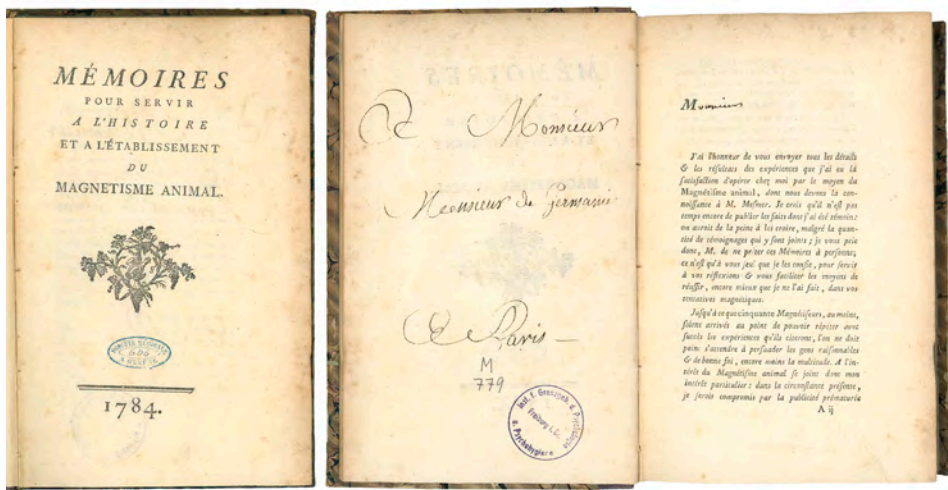 MÉMOIRES
POUR SERVIR
A L'HISTOIRE
ET A L'ÉTABLISSEMENT
DU
MAGNETISME ANIMAL.
606
1784.
A Monsieur
Monsieur de Germanie
A Paris
M
779
Inst. f. Grenzgeb. d. Psychologie
u. Psychohygiene
Freiburg i. Br.
Monsieur
J'ai l'honneur de vous envoyer tous les détails
& les résultats des expériences que j'ai eu la
satisfaction d'opérer chez moi par le moyen du
Magnétisme animal, dont nous devons la con-
noissance à M. Mesmer. Je crois qu'il n'est pas
temps encore de publier les faits dont j'ai été témoin:
on auroit de la peine à les croire, malgré la quan-
tité de témoignages qui y sont joints; je vous prie
donc, M. de ne prêter ces Mémoires à personne;
ce n'est qu'à vous seul que je les confie, pour servir
à vos réflexions & vous faciliter les moyens de
réussir, encore mieux que je ne l'ai fait, dans vos
tentatives magnétiques.
Jusqu'à ce que cinquante Magnétiseurs, au moins,
soient arrivés au point de pouvoir répéter avec
succès les expériences qu'ils citeront, l'on ne doit
point s'attendre à persuader les gens raisonnables
& de bonne foi, encore moins la multitude. A l'in-
térêt du Magnétisme animal se joint donc mon
intérêt particulier: dans la circonstance présente,
je serois compromis par la publicité prématurée
A ij